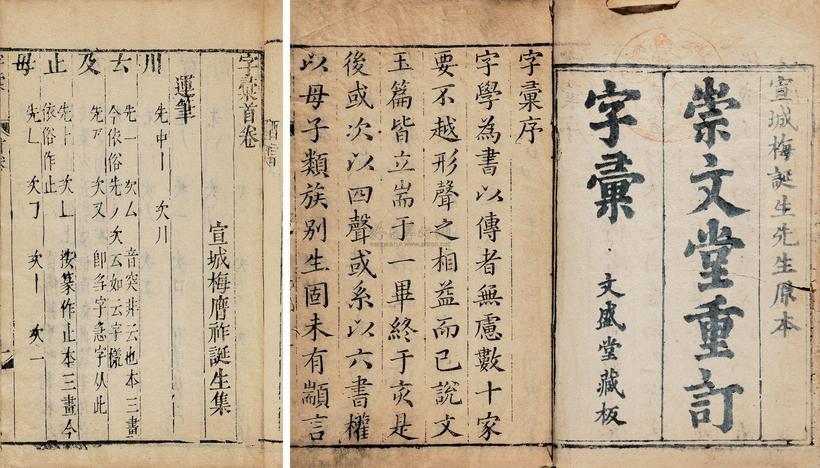 宣城梅誕生先生原本
崇文堂重訂
字彙
文盛堂藏板
字彙序
字學為書以傳者無慮數十家
要不越形聲之相益而已說文
玉篇皆立耑于一畢終于亥是
後或次以四聲或系以六書權
以母子類族别生固未有顓言
字彙首卷
宣城梅膺祚誕生集
運筆
川 先中丨 次川
𠫓 先一 次厶 音突非云也本三畫
今依俗先丿次云如云字
及 次又 即 字急字从此
止 先⺊ 次乚 按篆作止本三畫今
依俗作止
毋 先乚 次㇆ 次丨 次一